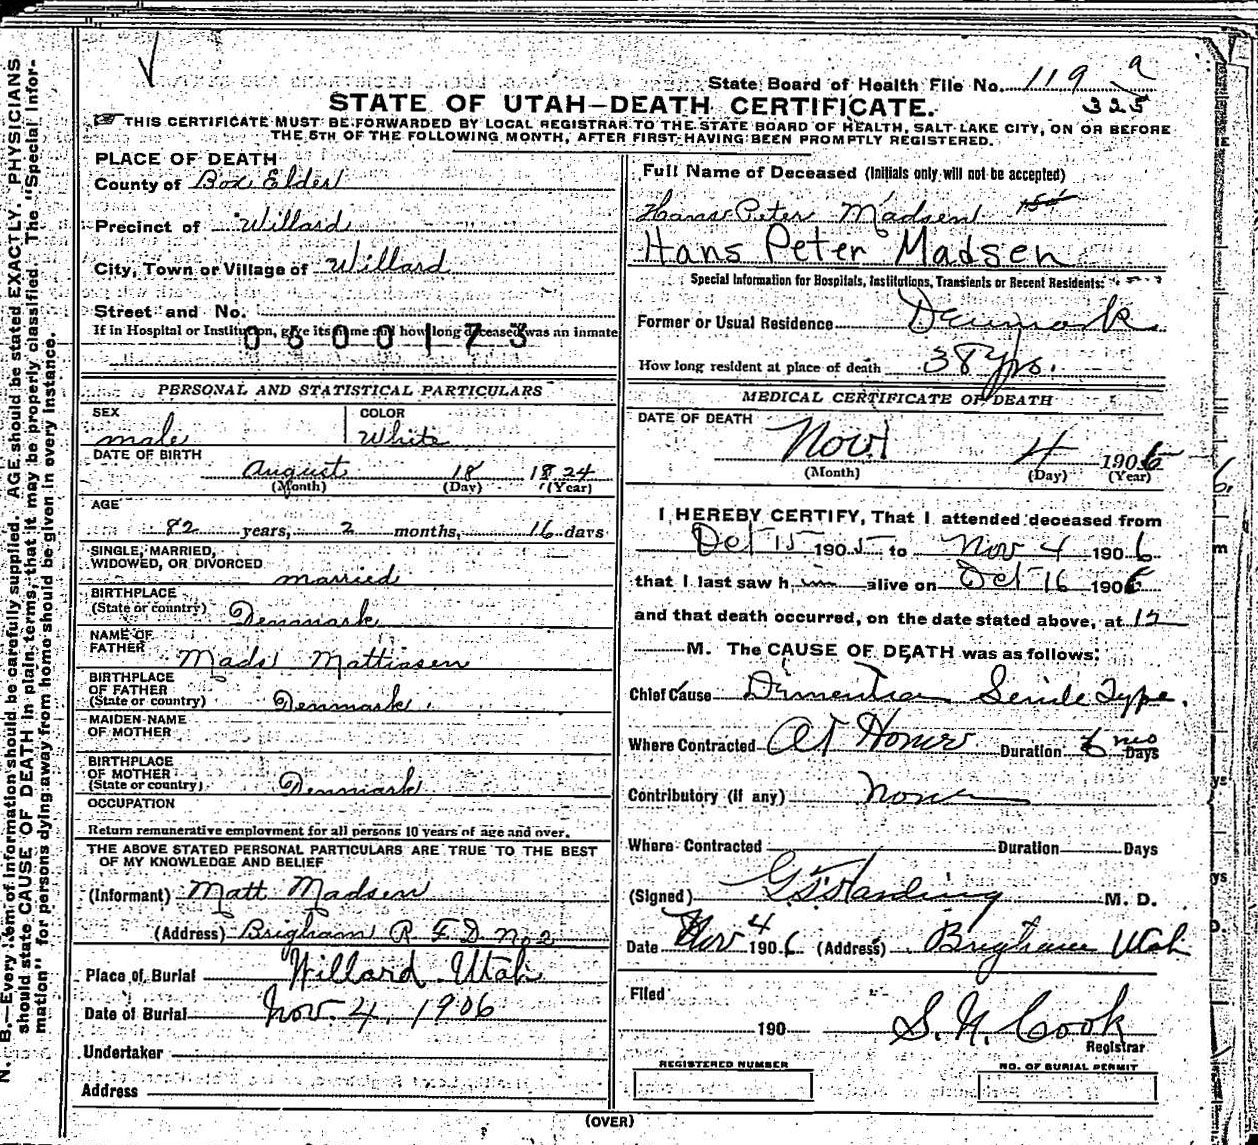 State Board of Health File No. 119 a
325
STATE OF UTAH—DEATH CERTIFICATE.
THIS CERTIFICATE MUST BE FORWARDED BY LOCAL REGISTRAR TO THE STATE BOARD OF HEALTH, SALT LAKE CITY, ON OR BEFORE
THE 5TH OF THE FOLLOWING MONTH, AFTER FIRST HAVING BEEN PROMPTLY REGISTERED.
PLACE OF DEATH
County of Box Elder
Precinct of Willard
City, Town or Village of Willard
Street and No.
If in Hospital or Institution, give its name and how long deceased was an inmate
0600173
PERSONAL AND STATISTICAL PARTICULARS
SEX male
COLOR White
DATE OF BIRTH
August 18 1824
(Month) (Day) (Year)
AGE
82 years, 2 months, 16 days
SINGLE, MARRIED,
WIDOWED, OR DIVORCED married
BIRTHPLACE
(State or country) Denmark
NAME OF
FATHER Mads Mattiasen
BIRTHPLACE
OF FATHER
(State or country) Denmark
MAIDEN NAME
OF MOTHER
BIRTHPLACE
OF MOTHER
(State or country) Denmark
OCCUPATION
Return remunerative employment for all persons 10 years of age and over.
THE ABOVE STATED PERSONAL PARTICULARS ARE TRUE TO THE BEST
OF MY KNOWLEDGE AND BELIEF
(Informant) Matt Madsen
(Address) Brigham R F D No 2
Place of Burial Willard Utah
Date of Burial Nov. 4. 1906
Undertaker
Address
Full Name of Deceased (Initials only will not be accepted)
Hans Peter Madsen
Hans Peter Madsen
Special Information for Hospitals, Institutions, Transients or Recent Residents:
Former or Usual Residence Denmark
How long resident at place of death 38 yrs.
MEDICAL CERTIFICATE OF DEATH
DATE OF DEATH
Nov 4 1906
(Month) (Day) (Year)
I HEREBY CERTIFY, That I attended deceased from
Oct 15 1905 to Nov 4 1906
that I last saw him alive on Oct 16 1906
and that death occurred, on the date stated above, at 12
M. The CAUSE OF DEATH was as follows:
Chief Cause Dimentia Senile Type.
Where Contracted At Home Duration 6 mos Days
Contributory (if any) None
Where Contracted Duration Days
(Signed) M. D.
Date Nov 4 1906 (Address) Brigham Utah
Filed
190 S. N. Cook
Registrar
REGISTERED NUMBER
NO. OF BURIAL PERMIT
(OVER)
N. B.—Every item of information should be carefully supplied. AGE should be stated EXACTLY. PHYSICIANS
should state CAUSE OF DEATH in plain terms, that it may be properly classified. The "Special Infor-
mation" for persons dying away from home should be given in every instance.